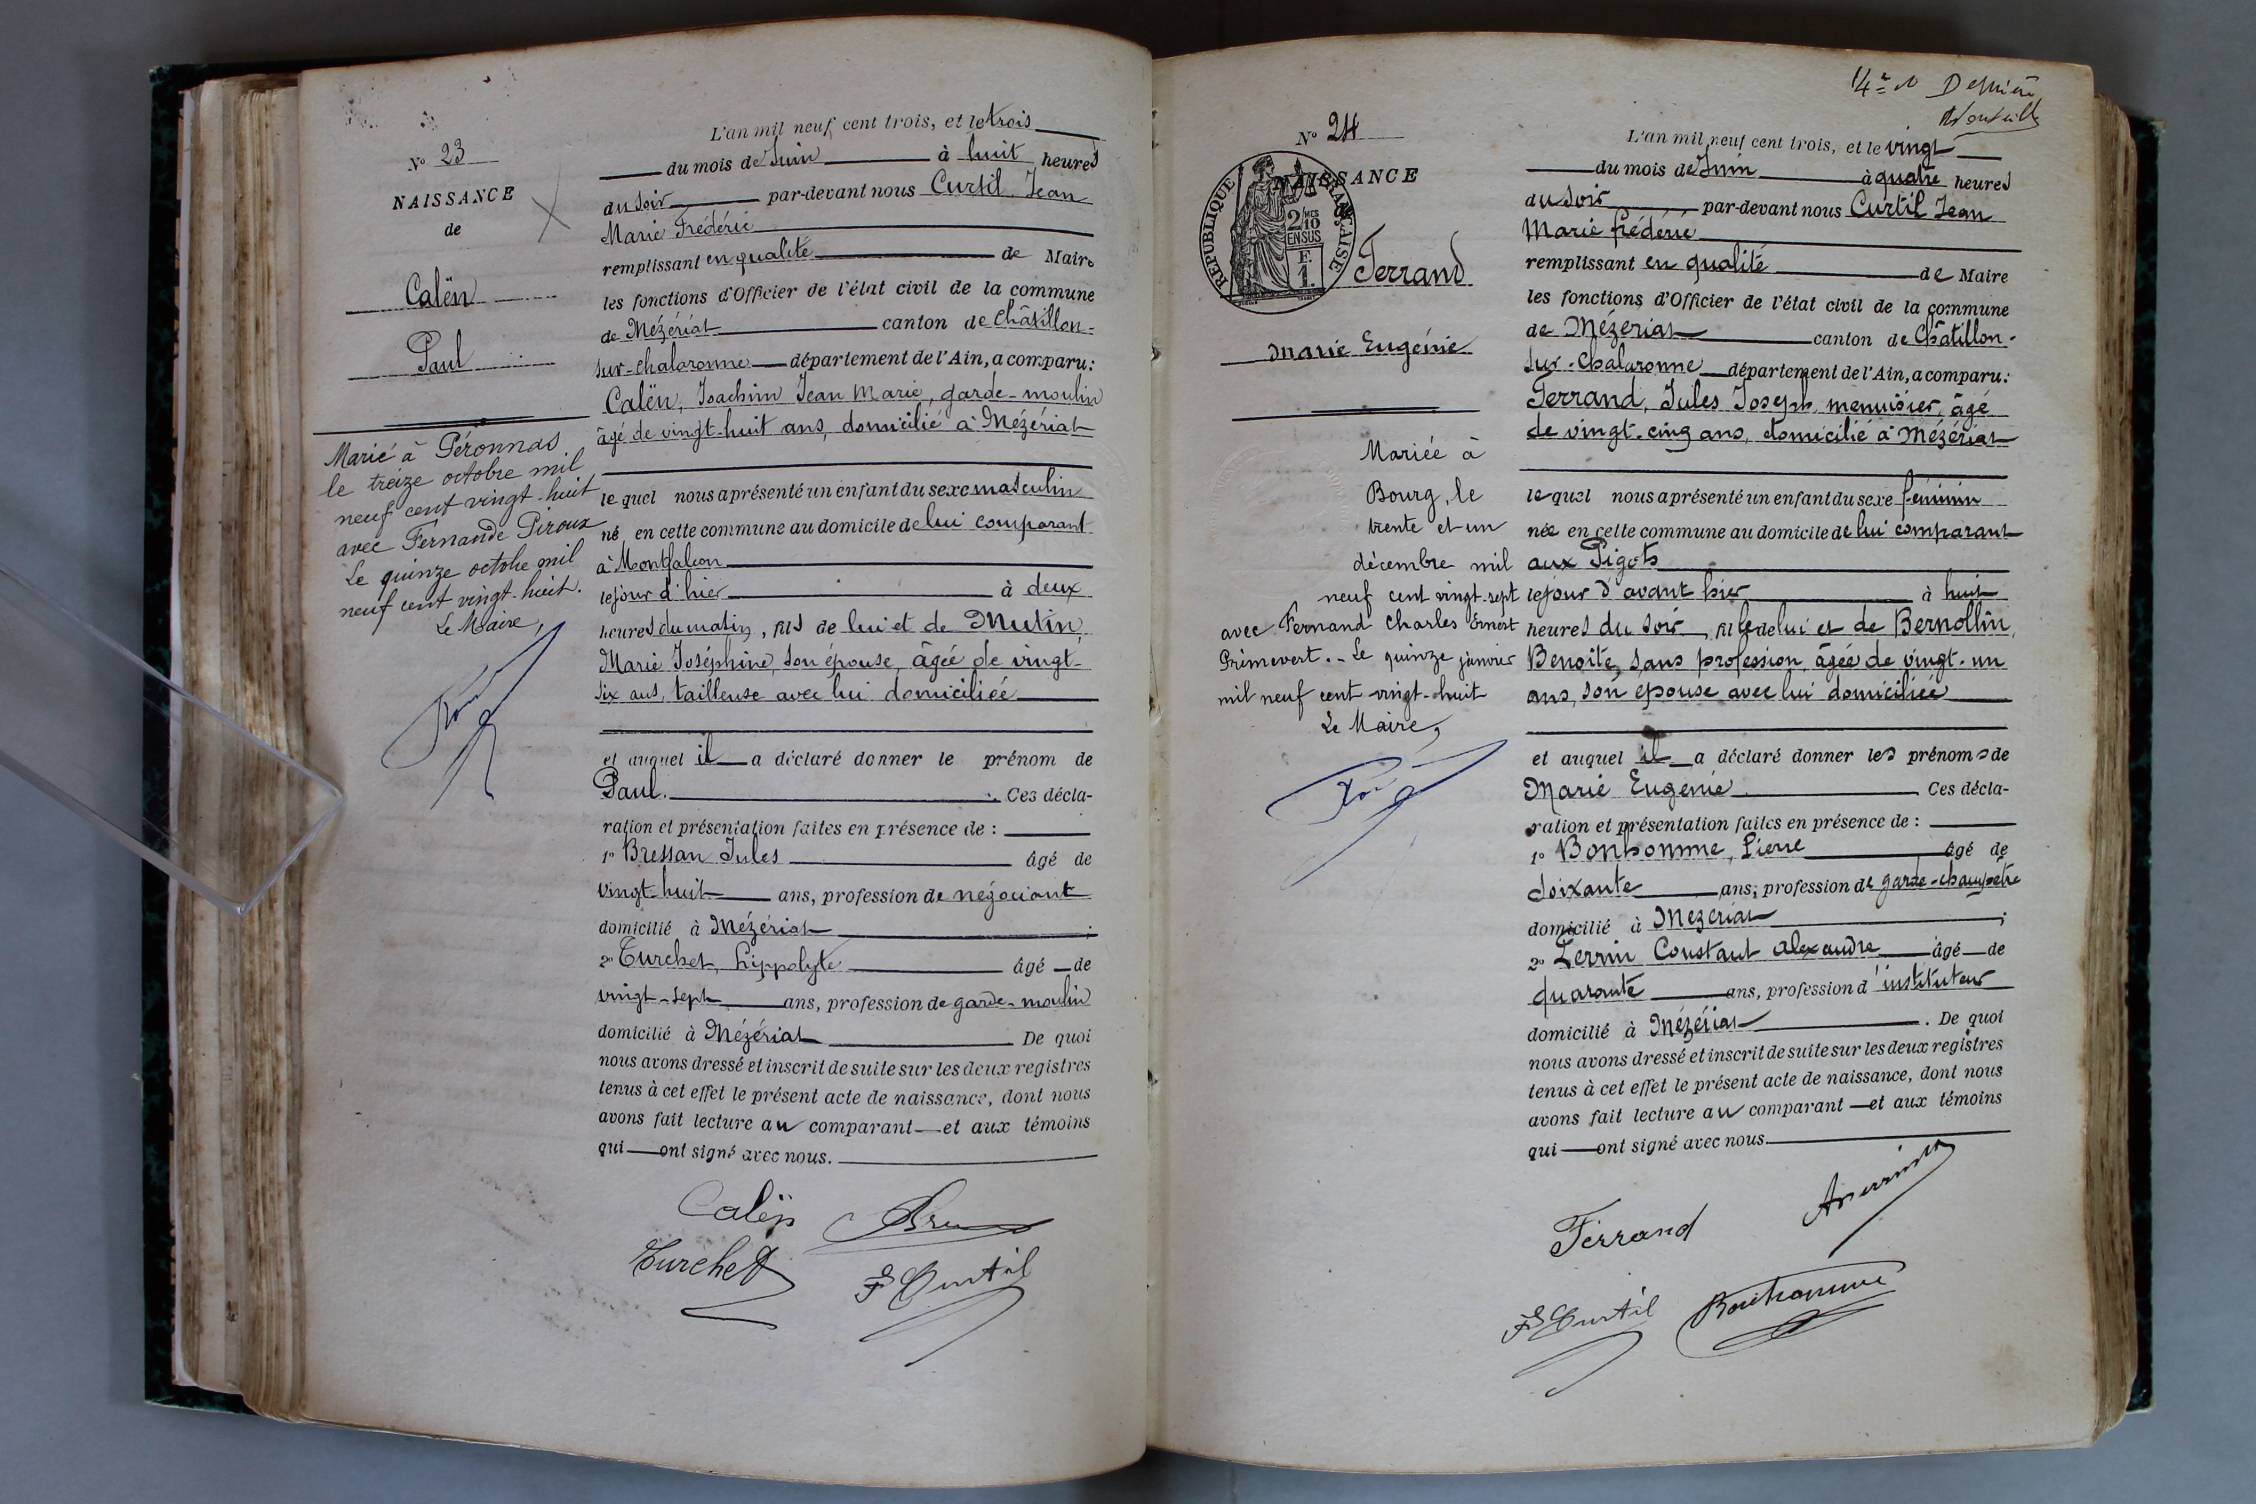 N° 23
NAISSANCE
de
Calën
Paul
Marié à Péronnas
le treize octobre mil
neuf cent vingt-huit
avec Fernande Piroux
Le quinze octobre mil
neuf cent vingt-huit.
Le Maire,
L'an mil neuf cent trois, et le trois
du mois de Juin à huit heures
du soir par-devant nous Curtil Jean
Marie Frédéric
remplissant en qualité de Maire
les fonctions d'Officier de l'état civil de la commune
de Mézériat canton de Châtillon-
sur-Chalaronne département de l'Ain, a comparu:
Calën, Joachim Jean Marie, garde-moulin
âgé de vingt-huit ans, domicilié à Mézériat
lequel nous a présenté un enfant du sexe masculin
né en cette commune au domicile de lui comparant
à Montfalcon
le jour d'hier à deux
heures du matin, fils de lui et de Mutin,
Marie Joséphine, son épouse, âgée de vingt-
six ans, tailleuse avec lui domiciliée
et auquel il a déclaré donner le prénom de
Paul. Ces décla-
ration et présentation faites en présence de :
1° Bressan Jules âgé de
vingt-huit ans, profession de négociant
domicilié à Mézériat ;
2° Turchet, hippolyte âgé de
vingt-sept ans, profession de garde-moulin
domicilié à Mézériat De quoi
nous avons dressé et inscrit de suite sur les deux registres
tenus à cet effet le présent acte de naissance, dont nous
avons fait lecture au comparant et aux témoins
qui ont signé avec nous.
Calën
Turchet
F Curtil
14e
N° 24
NAISSANCE
RÉPUBLIQUE FRANÇAISE
2/10
EN SUS
F.
1.
Ferrand
Marie Eugénie
Mariée à
Bourg, le
trente et un
décembre mil
neuf cent vingt-sept
avec Fernand Charles Ernest
Primevert. - Le quinze janvier
mil neuf cent vingt-huit
Le Maire,
L'an mil neuf cent trois, et le vingt
du mois de Juin à quatre heures
du soir par-devant nous Curtil Jean
Marie frédéric
remplissant en qualité de Maire
les fonctions d'Officier de l'état civil de la commune
de Mézériat canton de Châtillon-
sur-Chalaronne département de l'Ain, a comparu:
Ferrand, Jules Joseph, menuisier, âgé
de vingt-cinq ans, domicilié à Mézériat
lequel nous a présenté un enfant du sexe féminin
née en cette commune au domicile de lui comparant
aux Pigots
le jour d'avant hier à huit
heures du soir, fille de lui et de Bernollin,
Benoîte, sans profession, âgée de vingt-un
ans, son épouse avec lui domiciliée
et auquel il a déclaré donner les prénoms de
Marie Eugénie. Ces décla-
ration et présentation faites en présence de :
1° Bonhomme, Pierre âgé de
soixante ans, profession de garde-champêtre
domicilié à Mézériat ;
2° Perrin Constant alexandre âgé de
quarante ans, profession d'instituteur
domicilié à Mézériat . De quoi
nous avons dressé et inscrit de suite sur les deux registres
tenus à cet effet le présent acte de naissance, dont nous
avons fait lecture au comparant et aux témoins
qui ont signé avec nous.
Ferrand
F Curtil
Bonhomme